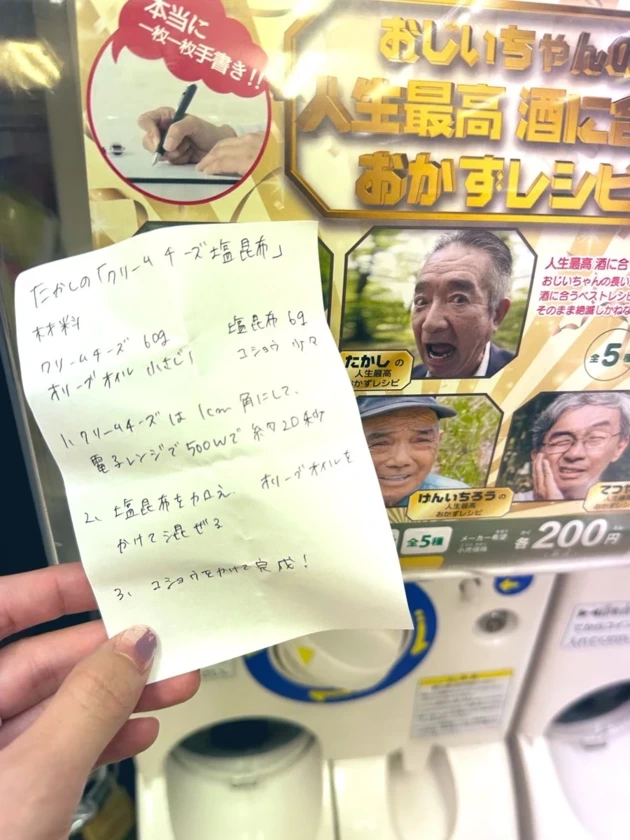 本当に
一枚一枚手書き!!
おじいちゃんの
人生最高 酒に合
おかずレシピ
人生最高 酒に合
おじいちゃんの長い
酒に合うベストレシピ
そのまま絶滅しかね
全5
たかし の
人生最高
おかずレシピ
けんいちろう の
人生最高
おかずレシピ
てつ
全5種
メーカー希望
小売価格
各200円
たかしの「クリームチーズ塩昆布」
材料
クリームチーズ 60g 塩昆布 6g
オリーブオイル 小さじ1 コショウ 少々
1、クリームチーズは1cm角にして、
電子レンジで500Wで約20秒
2、塩昆布を加え、オリーブオイルを
かけて混ぜる
3、コショウをかけて完成!